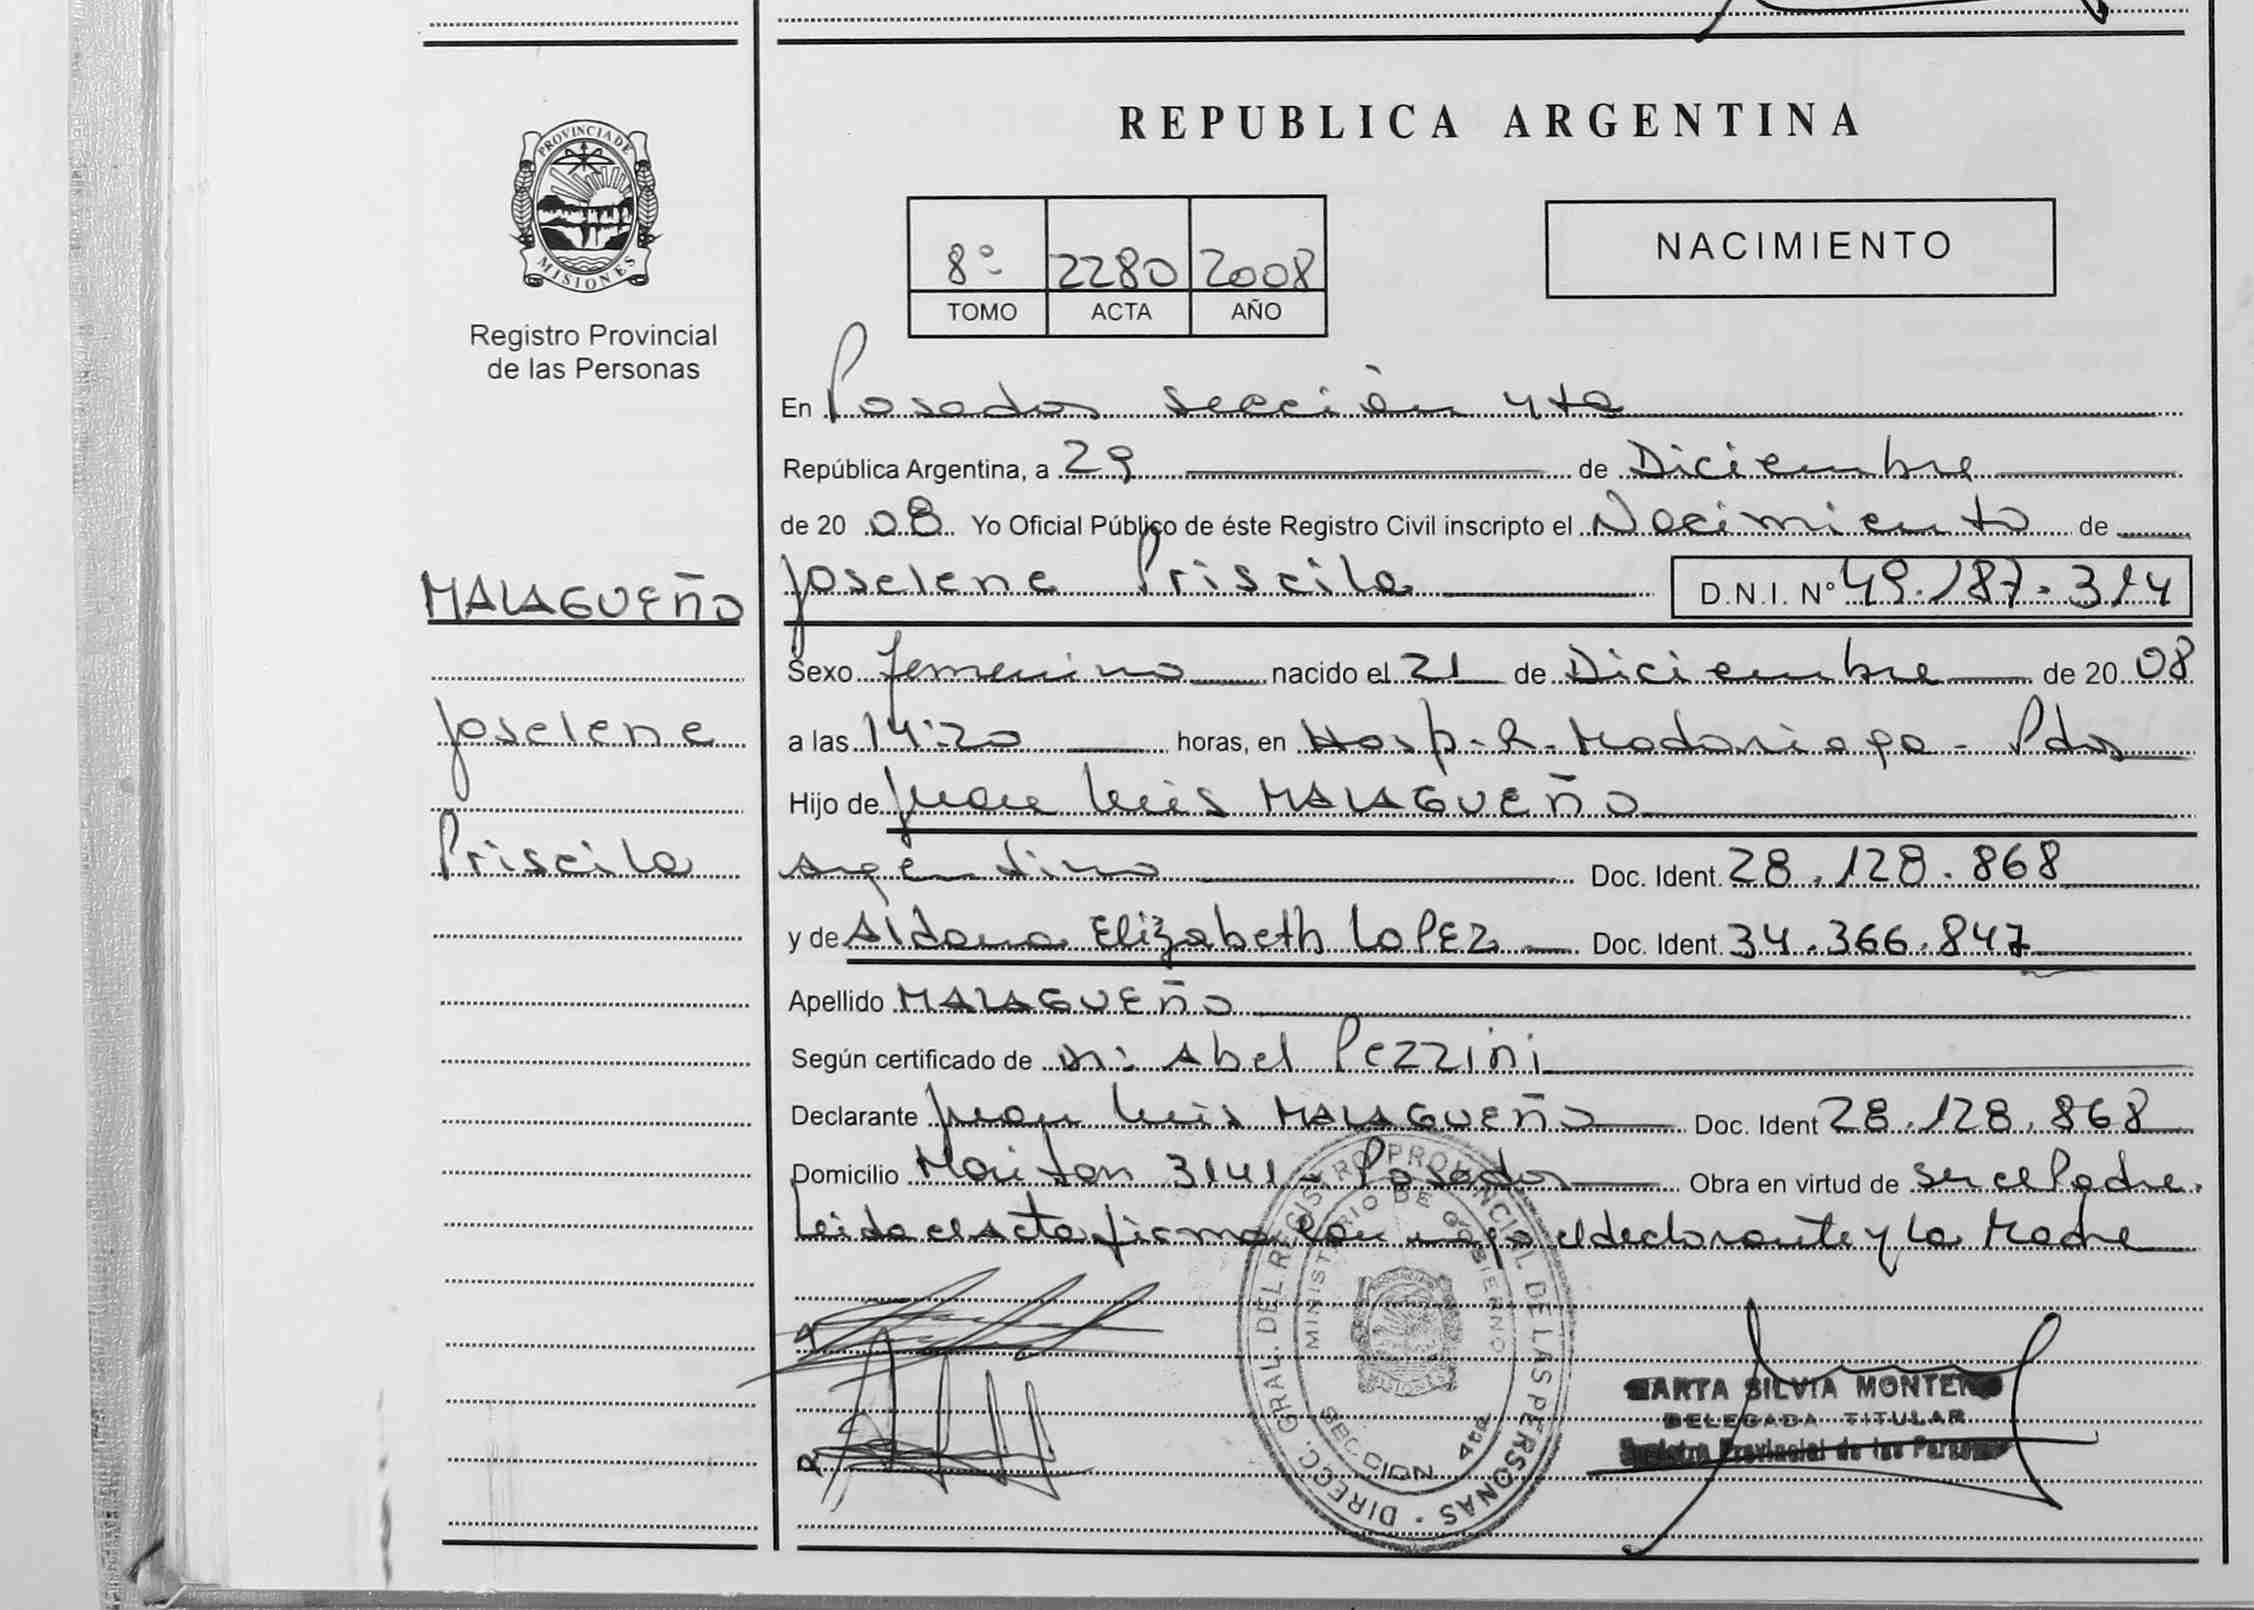 PROVINCIA DE
MISIONES
Registro Provincial
de las Personas
MALAGUEÑO
Joselene
Priscila
REPUBLICA ARGENTINA
8º 2280 2008
TOMO ACTA AÑO
NACIMIENTO
En Posadas Sección 4ta
República Argentina, a 29 de Diciembre
de 20 08 Yo Oficial Público de éste Registro Civil inscripto el Nacimiento de
Joselene Priscila D.N.I. Nº 49.187.314
Sexo femenino nacido el 21 de Diciembre de 20 08
a las 14:20 horas, en Hosp. R. Madariaga - Pdas
Hijo de Juan Luis MALAGUEÑO
Argentino Doc. Ident. 28.128.868
y de Aldana Elizabeth LOPEZ Doc. Ident. 34.366.847
Apellido MALAGUEÑO
Según certificado de Dr: Abel Pezzini
Declarante Juan Luis MALAGUEÑO Doc. Ident 28.128.868
Domicilio 3141 - Posadas Obra en virtud de ser el Padre.
Leida el Acta firma con migo el declarante y la Madre
DIRECC. GRAL. DEL REGISTRO PROVINCIAL DE LAS PERSONAS
MINISTERIO DE GOBIERNO
SECCION 4ta
MARTA SILVIA MONTERO
DELEGADA TITULAR
Registro Provincial de las Personas